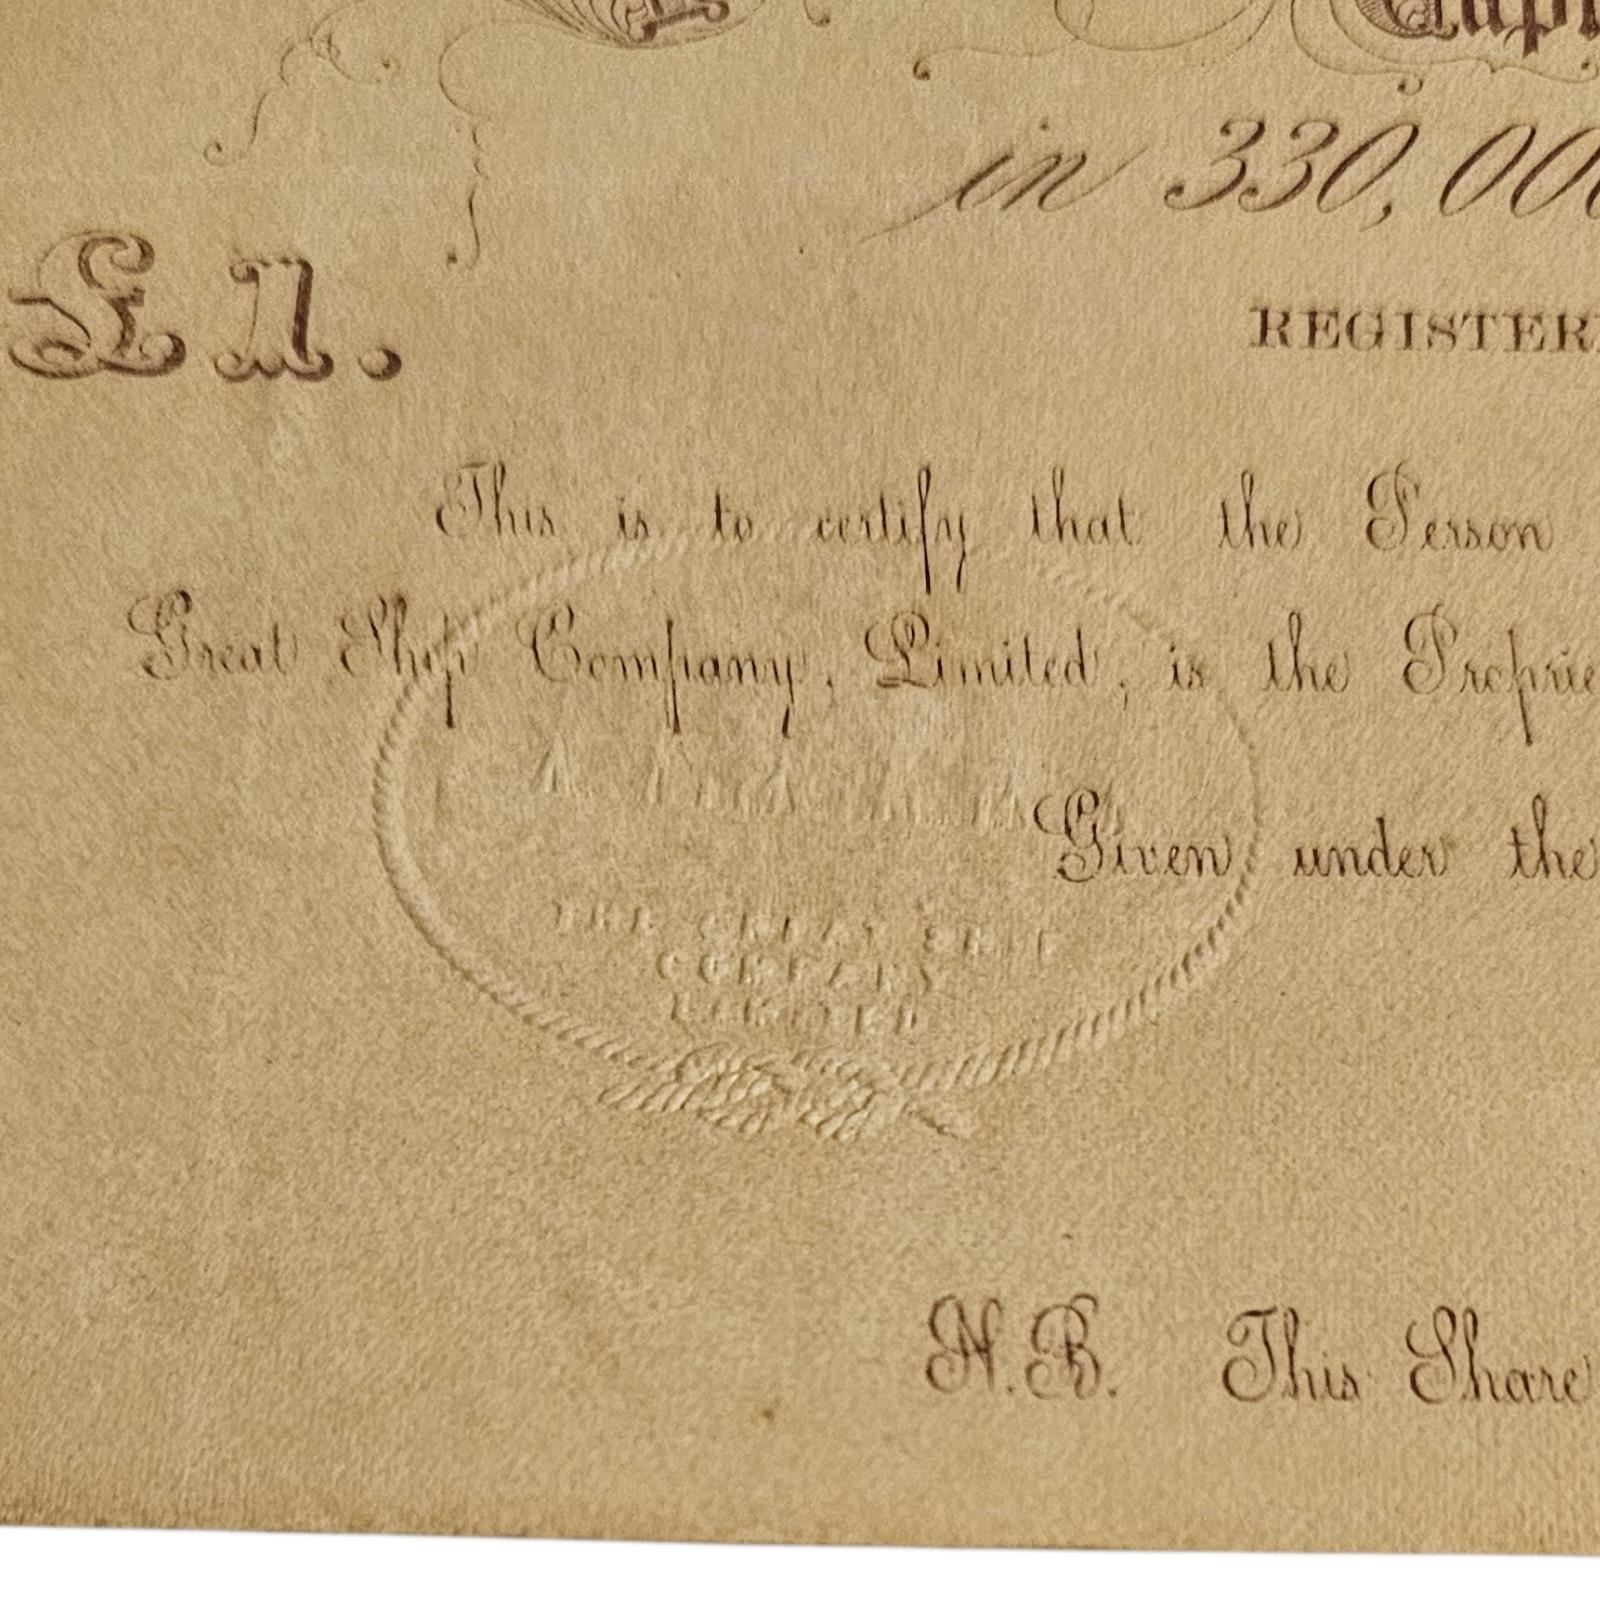 in 330,000
£1.
REGISTER
This is to certify that the Person
Great Ship Company, Limited, is the Proprie
Given under the
THE GREAT SHIP
COMPANY
LIMITED
N.B. This Share